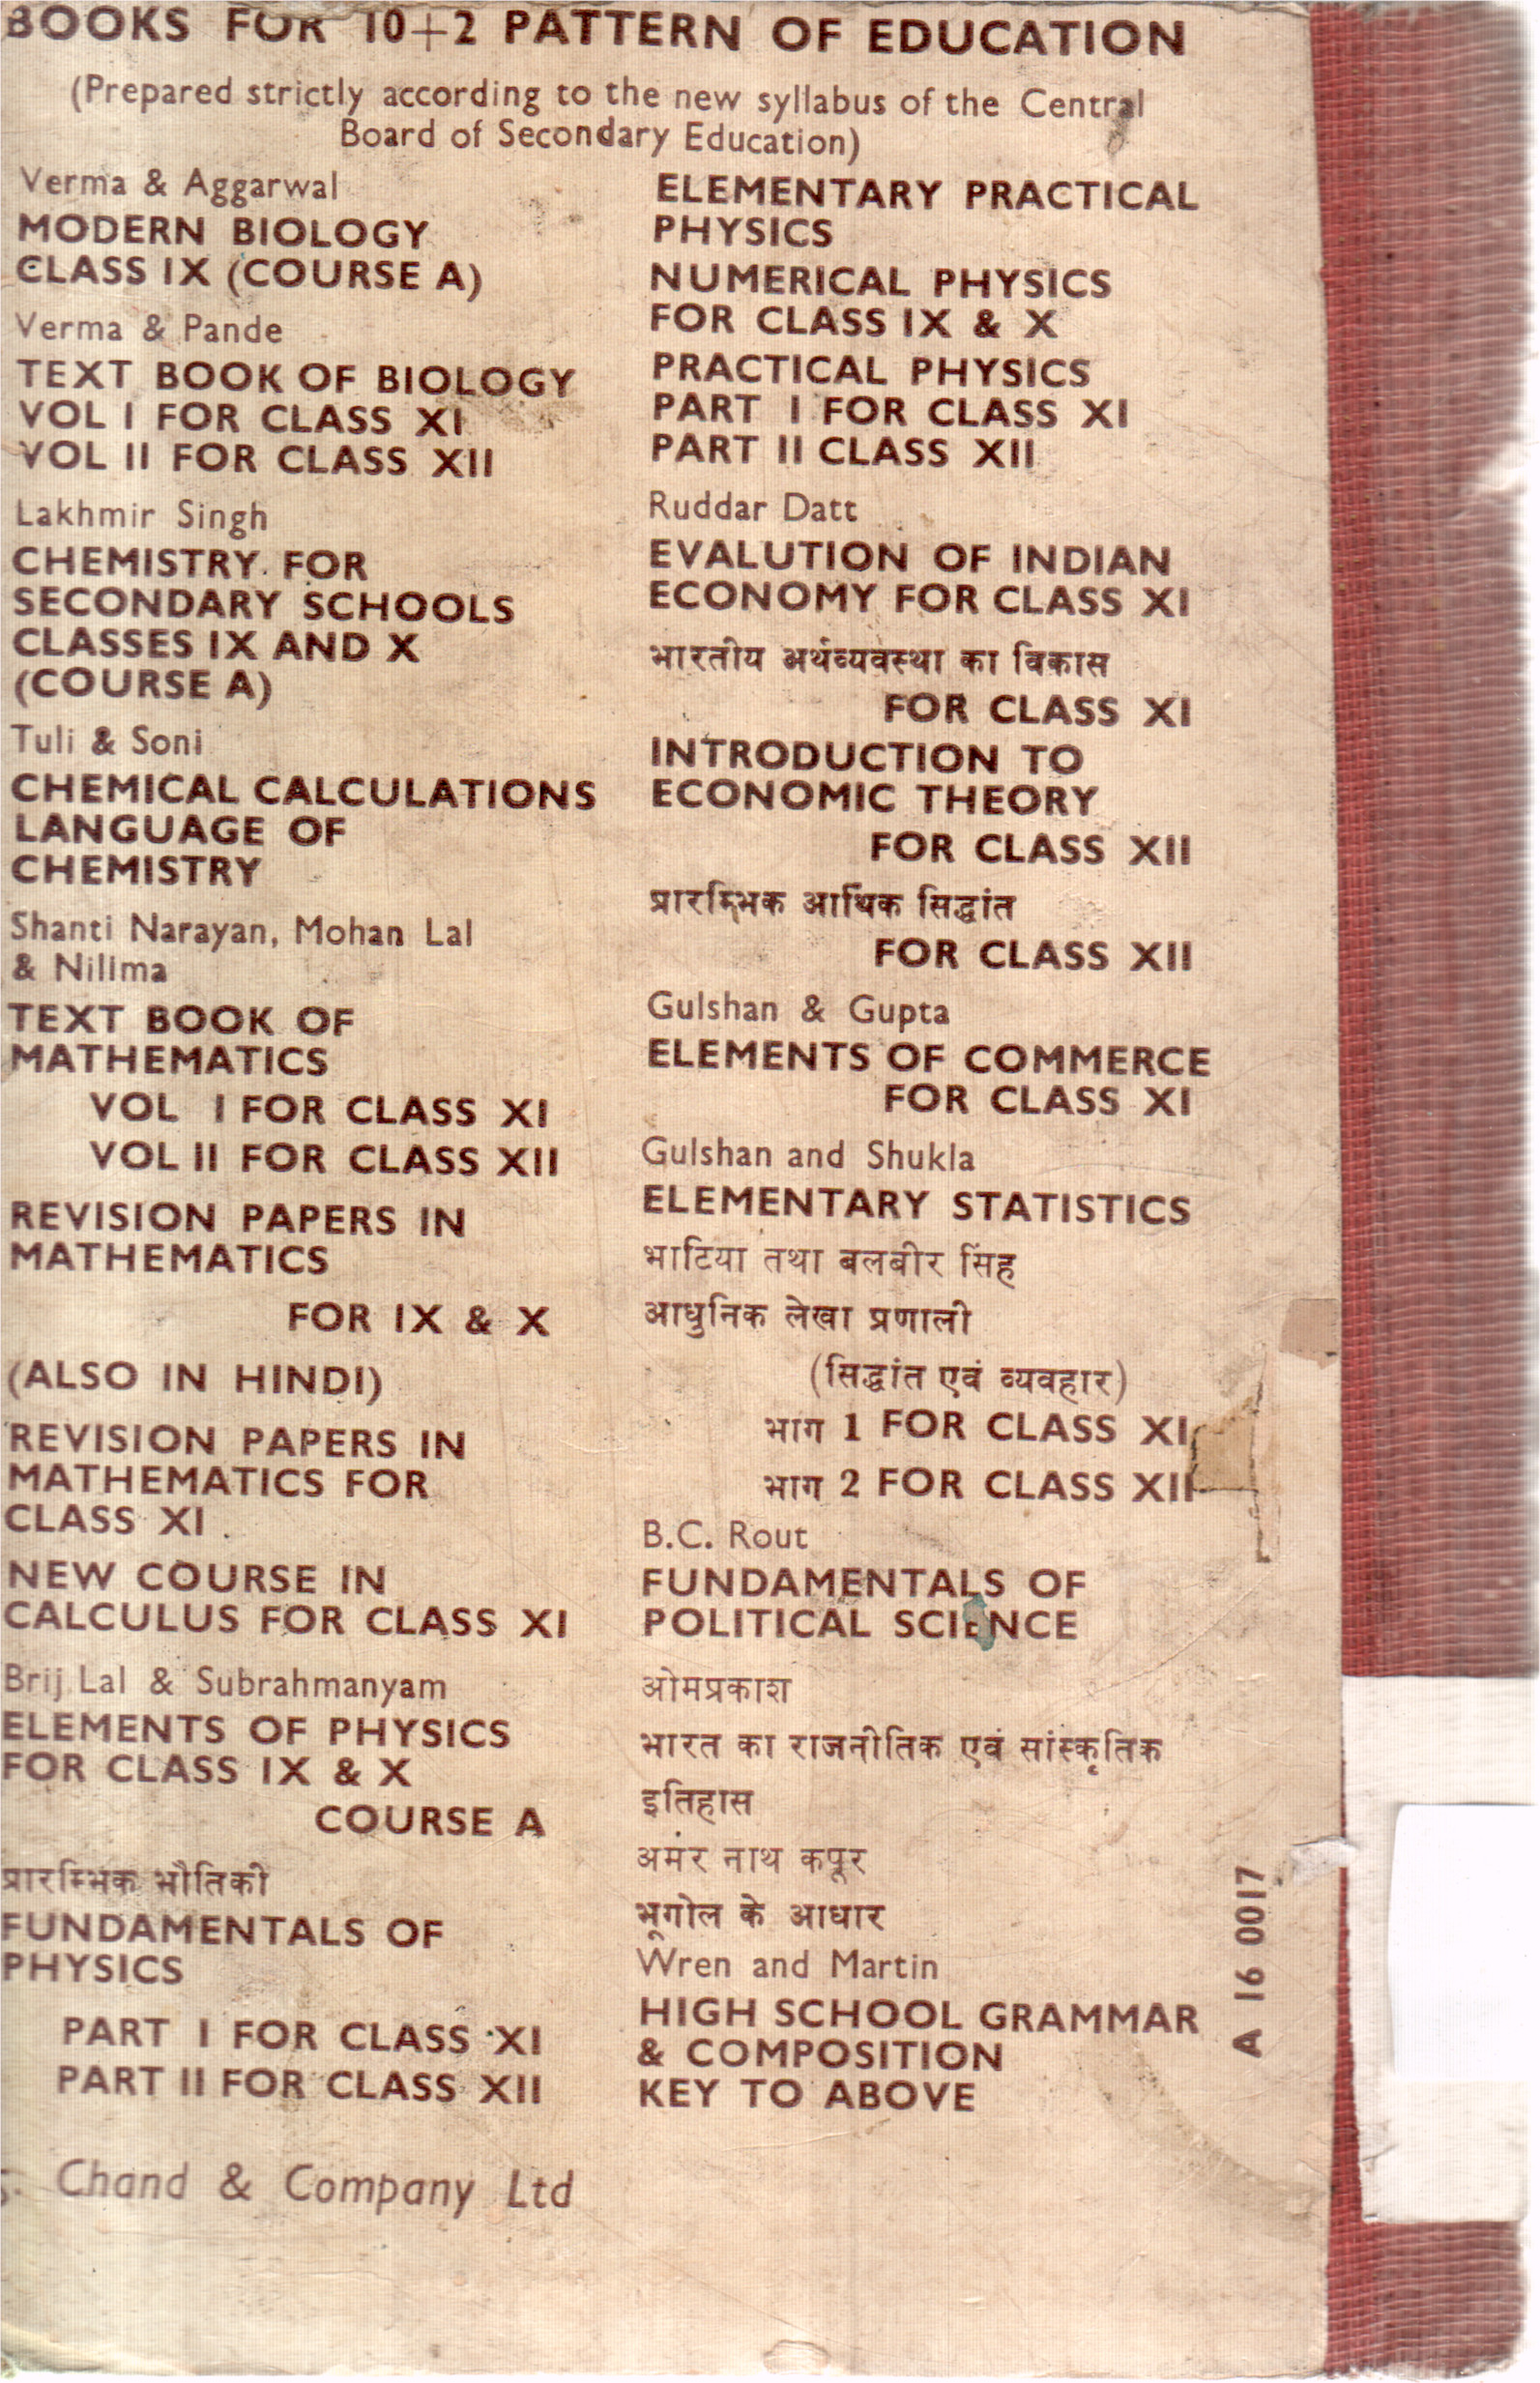 BOOKS FOR 10+2 PATTERN OF EDUCATION
(Prepared strictly according to the new syllabus of the Central
Board of Secondary Education)
Verma & Aggarwal
MODERN BIOLOGY
CLASS IX (COURSE A)
Verma & Pande
TEXT BOOK OF BIOLOGY
VOL I FOR CLASS XI
VOL II FOR CLASS XII
Lakhmir Singh
CHEMISTRY FOR
SECONDARY SCHOOLS
CLASSES IX AND X
(COURSE A)
Tuli & Soni
CHEMICAL CALCULATIONS
LANGUAGE OF
CHEMISTRY
Shanti Narayan, Mohan Lal
& Nilima
TEXT BOOK OF
MATHEMATICS
VOL I FOR CLASS XI
VOL II FOR CLASS XII
REVISION PAPERS IN
MATHEMATICS
FOR IX & X
(ALSO IN HINDI)
REVISION PAPERS IN
MATHEMATICS FOR
CLASS XI
NEW COURSE IN
CALCULUS FOR CLASS XI
Brij Lal & Subrahmanyam
ELEMENTS OF PHYSICS
FOR CLASS IX & X
COURSE A
प्रारम्भिक भौतिकी
FUNDAMENTALS OF
PHYSICS
PART I FOR CLASS XI
PART II FOR CLASS XII
S. Chand & Company Ltd
ELEMENTARY PRACTICAL
PHYSICS
NUMERICAL PHYSICS
FOR CLASS IX & X
PRACTICAL PHYSICS
PART I FOR CLASS XI
PART II CLASS XII
Ruddar Datt
EVALUTION OF INDIAN
ECONOMY FOR CLASS XI
भारतीय अर्थव्यवस्था का विकास
FOR CLASS XI
INTRODUCTION TO
ECONOMIC THEORY
FOR CLASS XII
प्रारम्भिक आर्थिक सिद्धांत
FOR CLASS XII
Gulshan & Gupta
ELEMENTS OF COMMERCE
FOR CLASS XI
Gulshan and Shukla
ELEMENTARY STATISTICS
भाटिया तथा बलबीर सिंह
आधुनिक लेखा प्रणाली
(सिद्धांत एवं व्यवहार)
भाग 1 FOR CLASS XI
भाग 2 FOR CLASS XII
B.C. Rout
FUNDAMENTALS OF
POLITICAL SCIENCE
ओमप्रकाश
भारत का राजनीतिक एवं सांस्कृतिक
इतिहास
अमर नाथ कपूर
भूगोल के आधार
Wren and Martin
HIGH SCHOOL GRAMMAR
& COMPOSITION
KEY TO ABOVE
A 16 0017